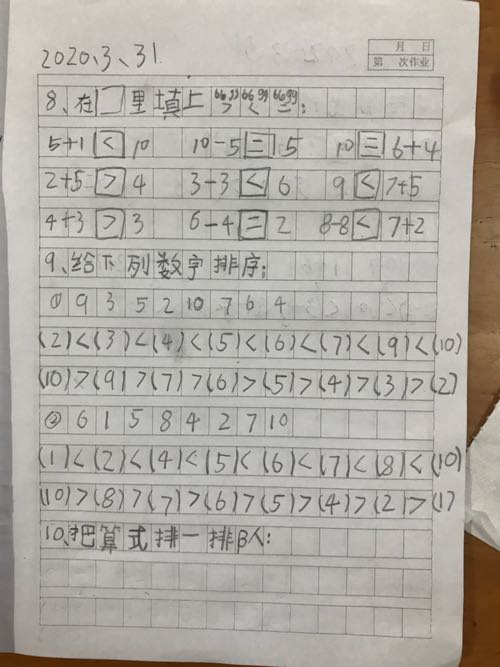 2020、3、31
月 日
第 次作业
8、在□里填上“>”“<”“=”:
5+1 < 10 10-5 = 5 10 = 6+4
2+5 > 4 3+3 < 6 9 < 7+5
4+3 > 3 6-4 = 2 8-8 < 7+2
9、给下列数字排序:
① 9 3 5 2 10 7 6 4
(2)<(3)<(4)<(5)<(6)<(7)<(9)<(10)
(10)>(9)>(7)>(6)>(5)>(4)>(3)>(2)
② 6 1 5 8 4 2 7 10
(1)<(2)<(4)<(5)<(6)<(7)<(8)<(10)
(10)>(8)>(7)>(6)>(5)>(4)>(2)>(1)
10、把算式排一排队: